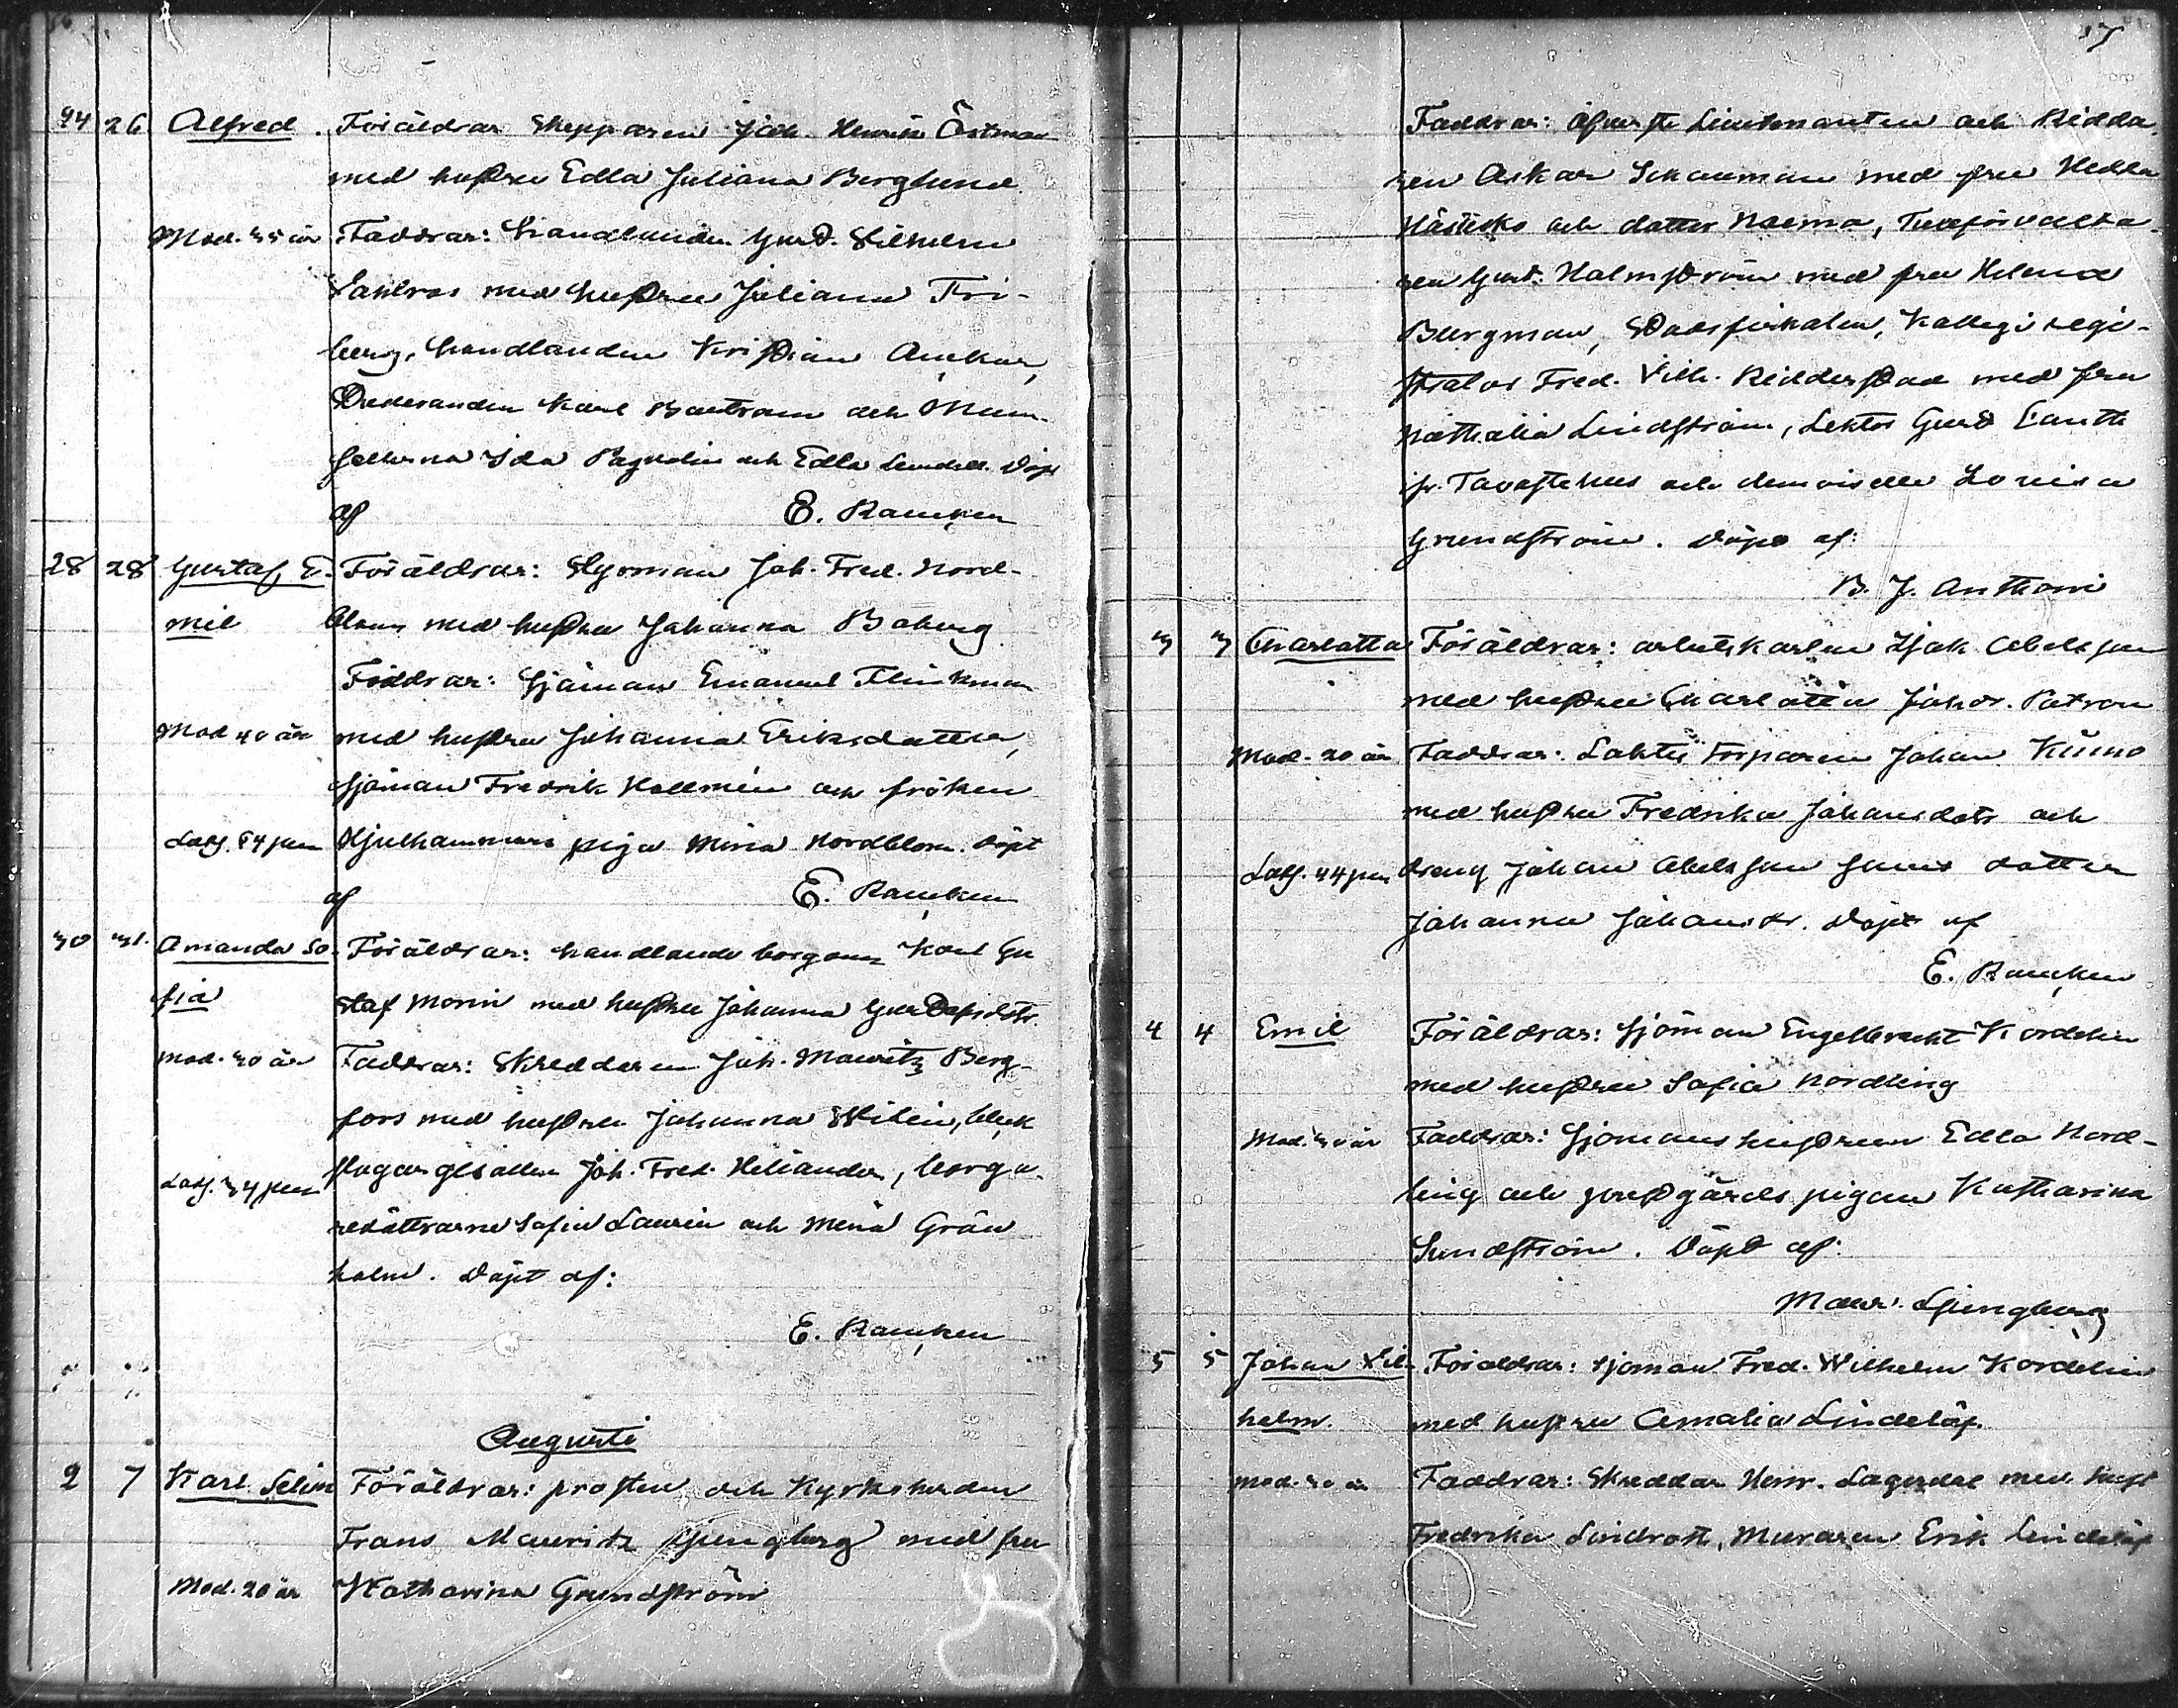 17
24 26 Alfred. Föräldrar Skepparen Joh. Henrik Östman
med hustru Edla Juliana Berglund
Mod. 35 år Faddrar: Handlanden Gust. Vilhelm
med hustru Juliana Fri-
berg, handlanden Kristian
Karl Bastram och Mam-
sellerna Ida och Edla Döpt
af E. Rancken
28 28 Gustaf E- Föräldrar: Styrman Joh. Fred. Nord-
mil blom med hustru Johanna Boberg
Faddrar: Sjöman Emanuel Flinkman
Mod 40 år med hustru Johanna Eriksdotter,
sjöman Fredrik Hollmén och fröken
Hjulhammars piga Mina Nordblom. Döpt
af E. Rancken
30 31. Amanda So- Föräldrar: handlande borgaren Karl Gu
fia staf Morin med hustru Johanna Gustafsdotr.
Mod. 30 år Faddrar: Skreddaren Joh. Mauritz Berg-
fors med hustru Johanna Widén, bleck
slagargesällen Joh. Fred. Heliander, borga-
redöttrarna Sofia Laurén och Mina Grön
holm. Döpt af:
E. Rancken
Augusti
2 7 Karl Selim Föräldrar: prosten och Kyrkoherden
Frans Mauritz Ljungberg med fru
Mod. 20 år Katharina Grundström
Faddrar: Öfverste Lieutenanten och Ridda-
ren Oskar Schauman med fru Hedda
Hästesko och dotter Naema, Tullförvalta-
ren Gust. Holmström med fru Helena
Bergman, Stadsfiskalen, Kollegi regi-
strator Fred. Vilh. Ridderstad med fru
Nathalia Lindström, Lektor Gust Canth
ifr. Tavastehus och demoiselle Lovisa
Grundström. Döpt af:
B. J. Anthoni
3 3 Charlotta Föräldrar: arbetskarlen Isak Abelsson
med hustru Charlotta Johdr. Patron
Mod. 20 år Faddrar: Torparen Johan Kumo
med hustru Fredrika Johansdotr och
dreng Johan Abelsson samt dotter
Johanna Johansdr. Döpt af
E. Rancken
4 4 Emil Föräldrar: Sjöman Engelbrecht Kordelin
med hustru Sofia Nordling
Mod. 30 år Faddrar: Sjömans hustrun Edla Nord-
ling och prestgårds pigan Katharina
Sundström. Döpt af:
Maur. Ljungberg
5 5 Johan Vil- Föräldrar: sjöman Fred. Wilhelm Kordelin
helm. med hustru Amalia Lindelöf.
Mod. 30 år Faddrar: Skreddar Henr. Lagerdal med hust
Fredrika Lindroth, Muraren Erik Lindelöf